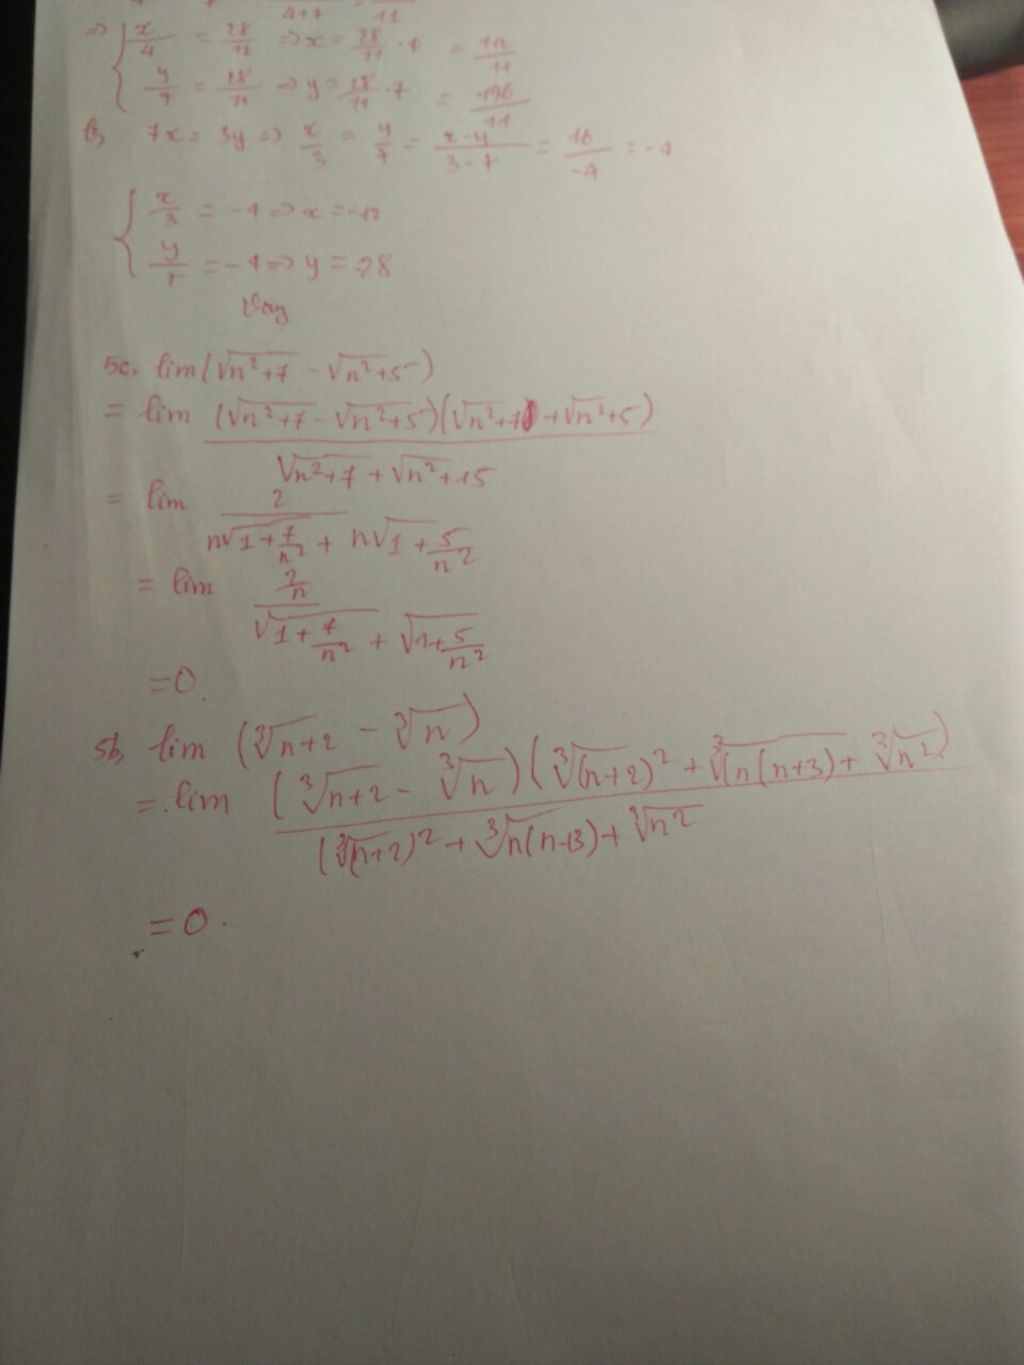 ⇒ { x/4 = 28/11 ⇒ x = 28/11 · 4 = 112/11
y/7 = 28/11 ⇒ y = 28/11 · 7 = 196/11
b, 7x = 3y ⇒ x/3 = y/7 = (x-y)/(3-7) = 16/-4 = -4
{ x/3 = -4 ⇒ x = -12
y/7 = -4 ⇒ y = -28
Vay
5c, lim(√(n²+7) - √(n²+5))
= lim (√(n²+7) - √(n²+5))(√(n²+7) + √(n²+5)) / (√(n²+7) + √n²+15)
= lim 2 / (n√(1+7/n²) + n√(1+5/n²))
= lim (2/n) / (√(1+7/n²) + √(1+5/n²))
= 0.
5b, lim (∛(n+2) - ∛n)
= lim (∛(n+2) - ∛n)(∛(n+2)² + ∛(n(n+3)) + ∛n²) / (∛(n+2)² + ∛n(n+3) + ∛n²)
= 0.